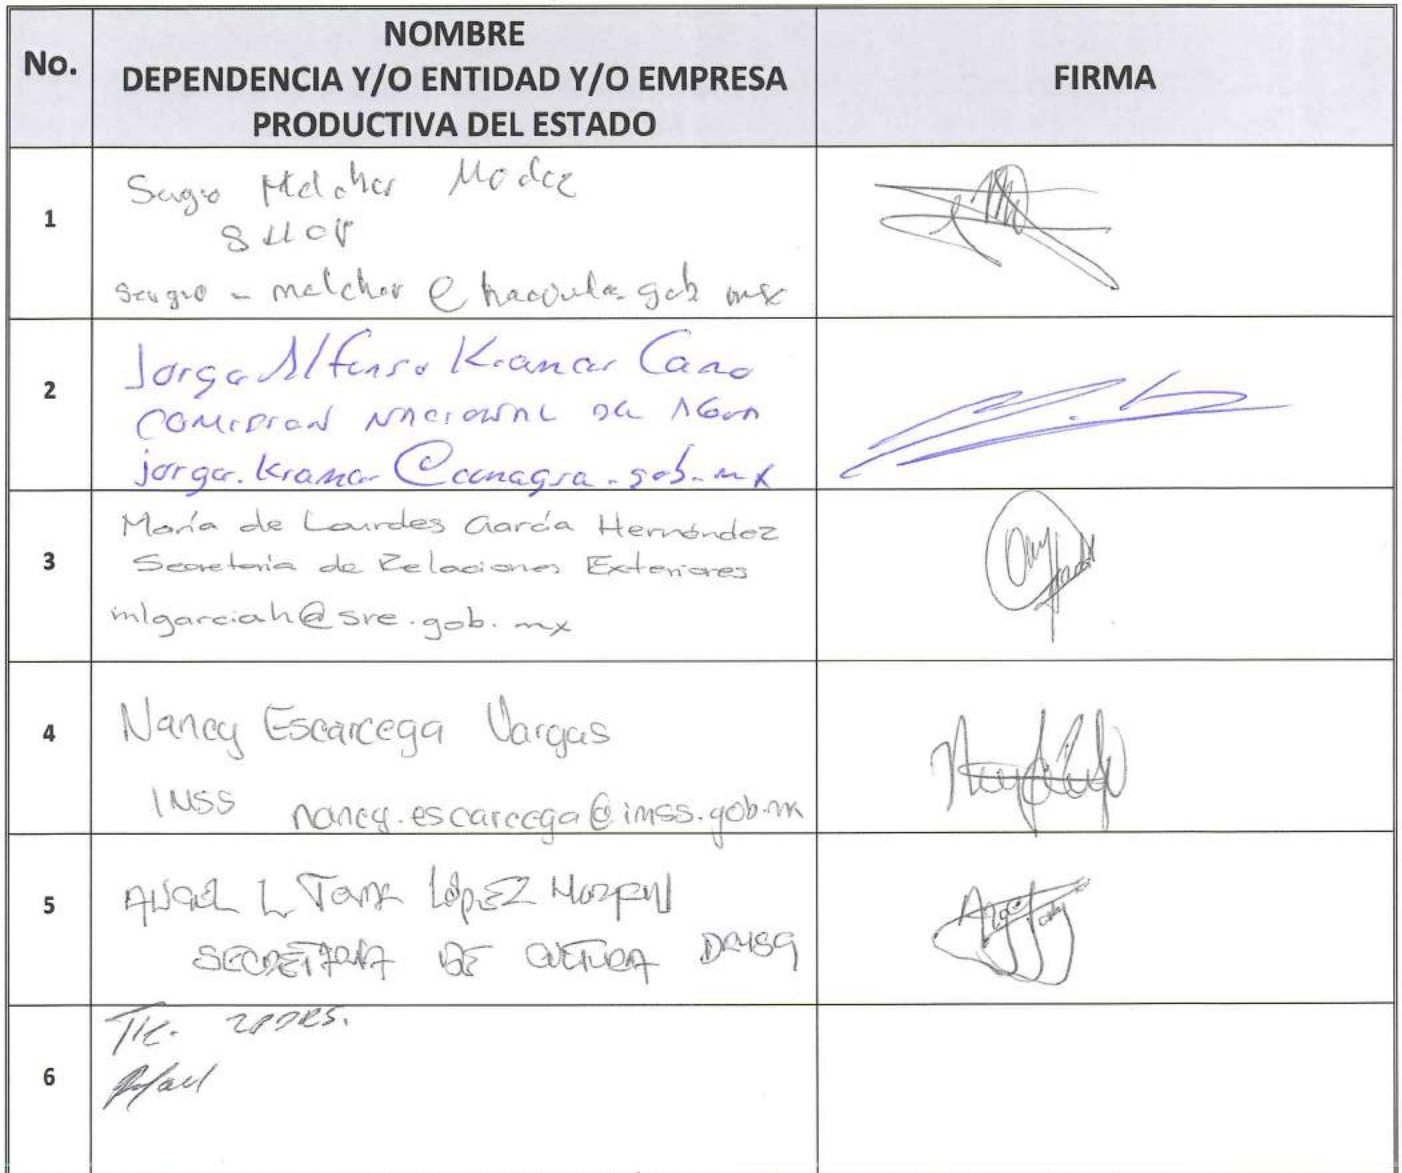 No.
NOMBRE
DEPENDENCIA Y/O ENTIDAD Y/O EMPRESA
PRODUCTIVA DEL ESTADO
FIRMA
1
Sergio Melchor
SHCP
sergio_melchor@hacienda.gob.mx
2
Jorge Alfonso Kramer Cano
COMISION NACIONAL DEL AGUA
jorge.kramer@conagua.gob.mx
3
María de Lourdes García Hernández
Secretaria de Relaciones Exteriores
mlgarciah@sre.gob.mx
4
Nancy Escarcega Vargas
IMSS nancy.escarcega@imss.gob.mx
5
ANGEL L. LÓPEZ
SECRETARIA DE CULTURA
6
Rafael